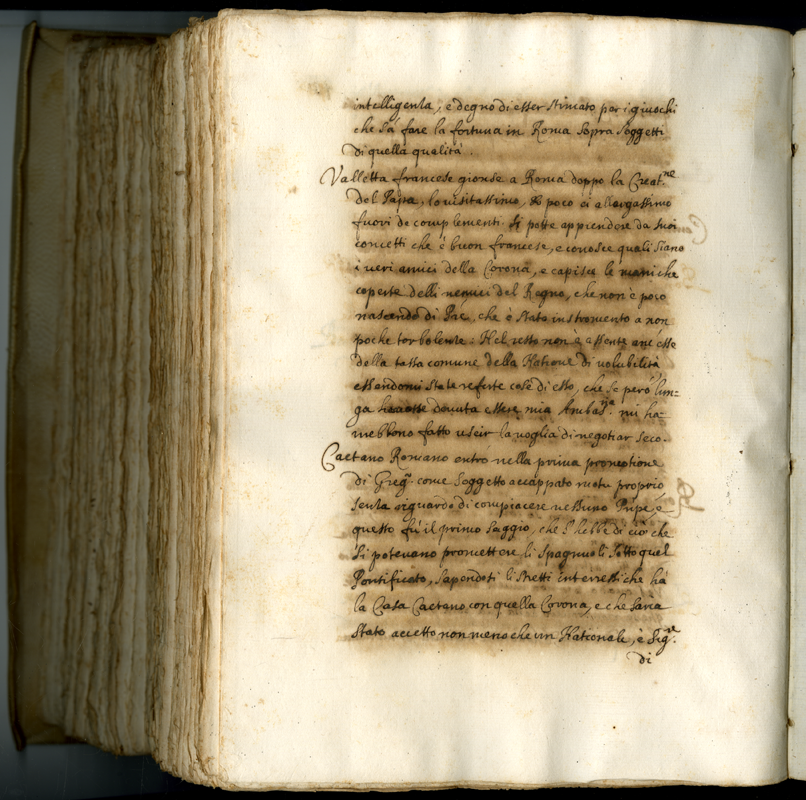 intelligenza, e degno di esser stimato per i giuochi
che sà fare la fortuna in Roma sopra soggetti
di quella qualità.
Valletta francese gionse a Roma doppo la Creat.ne
del Papa, lo visitassimo, poco ci allargassimo
fuori de complementi. Si potte apprendere da suoi
concetti che è buon francese, e conosce quali siano
i veri amici della Corona, e capisce le maniche
coperte delli nemici del Regno, che non è poco
nascendo di Pre, che è stato instromento a non
poche torbolenze: Nel resto non è essente anc'esse
della tassa comune della Natione di volubilità
essendomi state referte cose di esto, che se però lun=
ga havesse dovuta essere mia Ambas.ria mi ha=
rebbono fatto uscir la voglia di negotiar seco.
Caetano Romano entro nella prima promotione
di Greg.o come soggetto accappato motu proprio
senza riguardo di compiacere nessuno Pnpe, e
questo fù il primo saggio, che s'hebbe di ciò che
si potevano promettere li Spagnuoli sotto quel
Pontificato, sapendosi li stretti interressi che hà
la Casa Caetano con quella Corona, e che saria
stato accetto non meno che un Nationale, è Sig.re
di